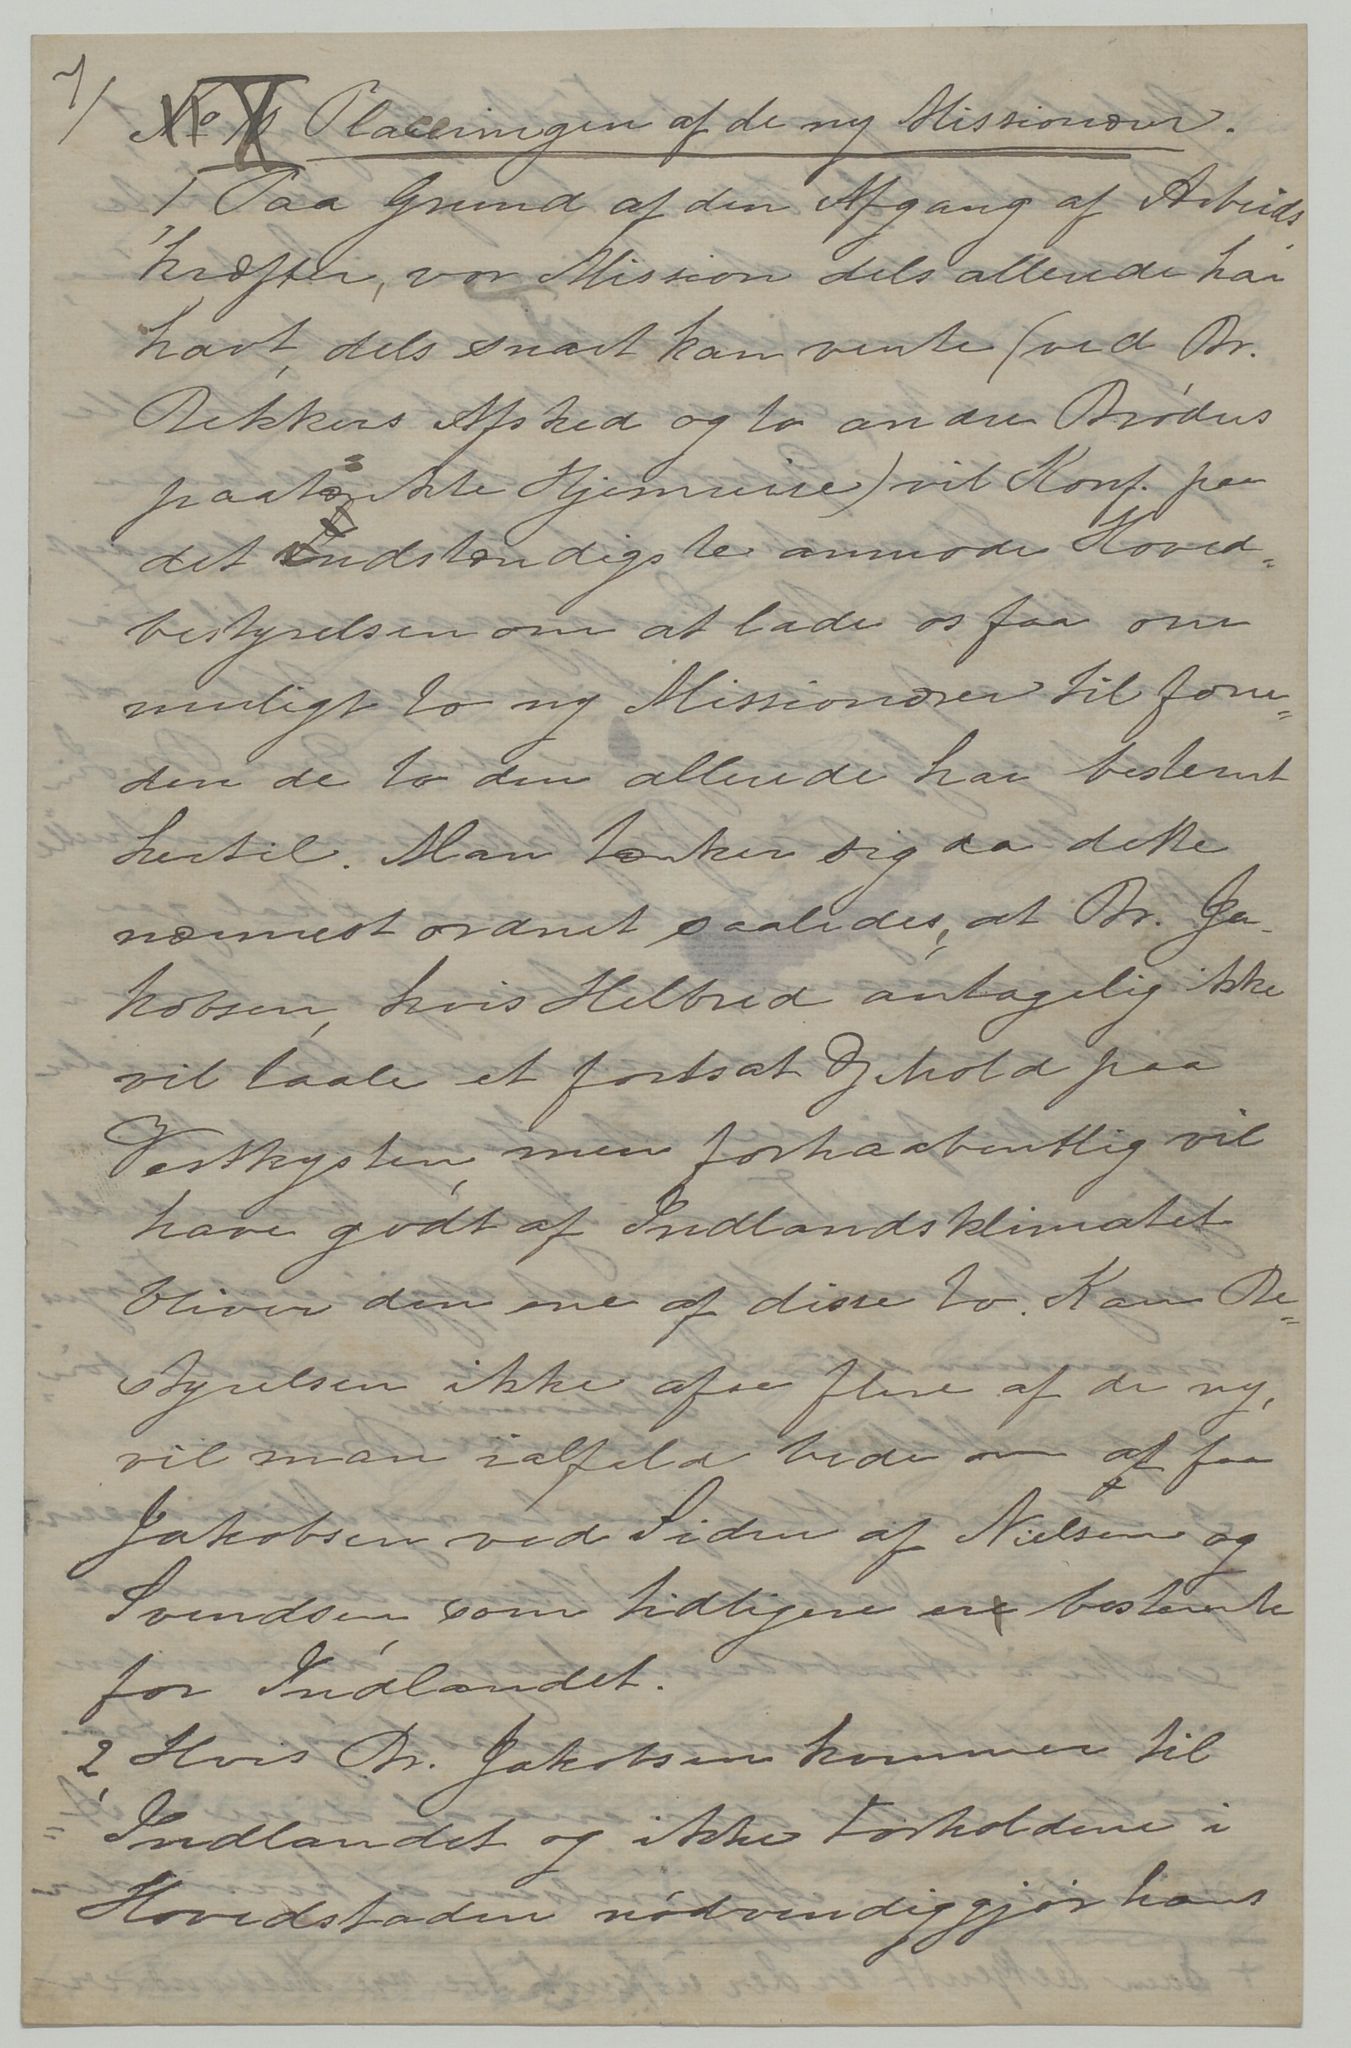 7/
No X Placeringen af de ny Missionærer.
1, Paa Grund af den Afgang af Arbeids
kræfter, vor Mission dels allerede har
havt, dels snart kan vente (ved Br.
Bekkers Afsked og to andre Brødres
paatænkte Hjemreise) vil Konf. paa
det Indstændigste anmode Hoved-
bestyrelsen om at lade os faa om
muligt to ny Missionærer til foru-
den de to den allerede har bestemt
hertil. Man tænker sig da dette
nærmest ordnet saaledes, at Br. Ja-
kobsen, hvis Helbred antagelig ikke
vil taale et fortsat Ophold paa
Vestkysten, men forhaabentlig vil
have godt af Indlandsklimatet
bliver den ene af disse to. Kan Be-
styrelsen ikke afse flere af de ny,
vil man ialfald bede om at faa
Jakobsen ved Siden af Nielsen og
Svendsen, som tidligere ere bestemte
for Indlandet.
2, Hvis Br. Jakobsen kommer til
Indlandet og ikke Forholdene i
Hovedstaden nødvendiggjør hans